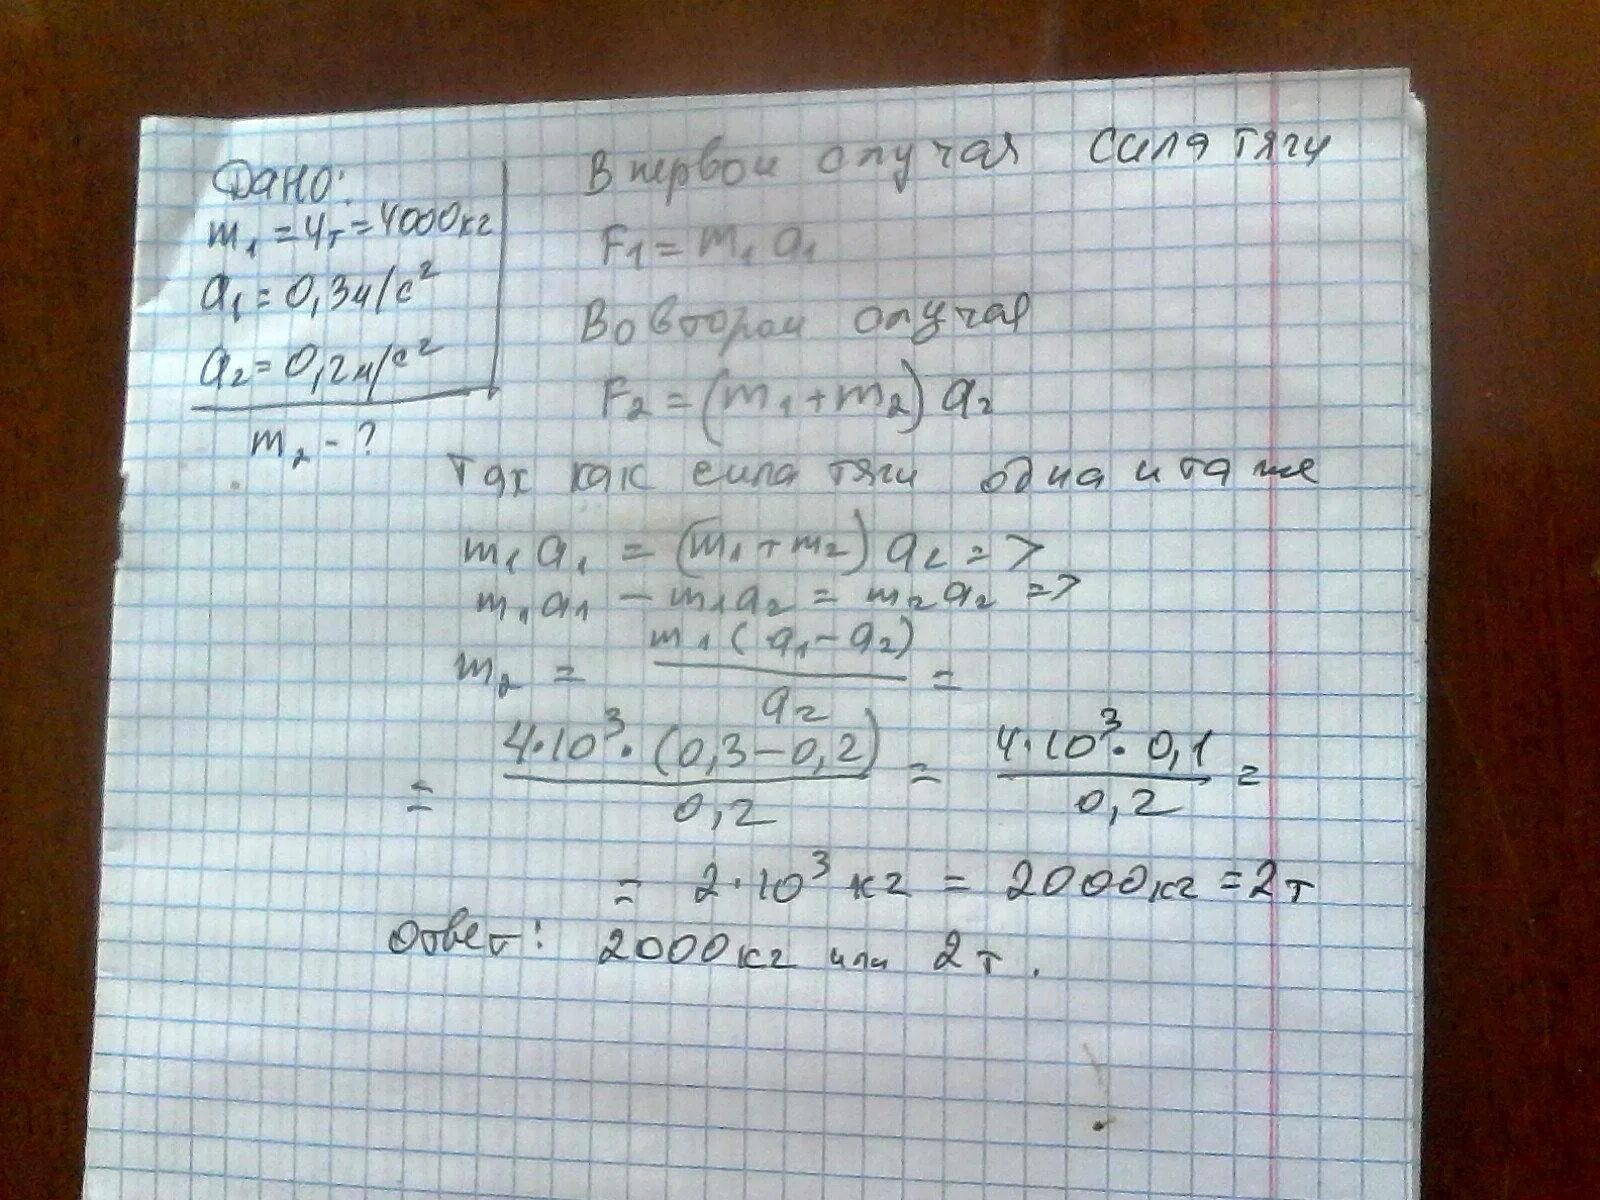 Дано:
m₁ = 4т = 4000кг
a₁ = 0,3м/с²
a₂ = 0,2м/с²
m₂ - ?
В первом случая сила тяги
F₁ = m₁ a₁
Во втором случая
F₂ = (m₁ + m₂) a₂
Так как сила тяги одна и та же
m₁ a₁ = (m₁ + m₂) a₂ =>
m₁a₁ - m₁a₂ = m₂a₂ =>
m₂ = m₁ (a₁ - a₂) / a₂ =
= 4·10³·(0,3 - 0,2) / 0,2 = 4·10³·0,1 / 0,2 =
= 2·10³ кг = 2000кг = 2т
Ответ: 2000кг или 2т.